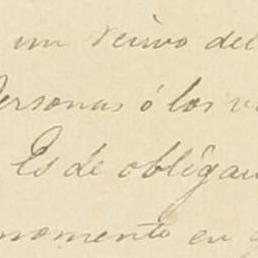 un vecino del
ersonas ó los v
Es de obligan
momento en